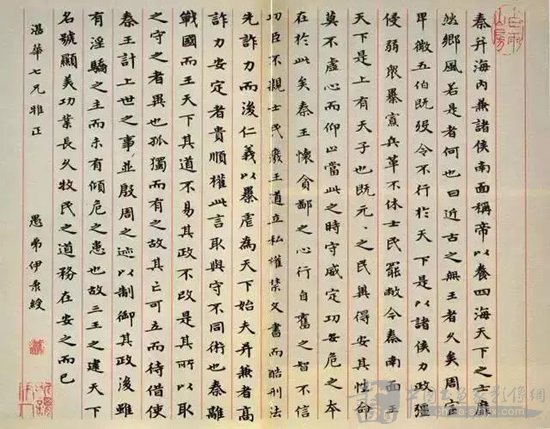 秦并海內兼諸侯南面稱帝以養四海天下之士斐
然鄉風若是者何也曰近古之無王者久矣周室
卑微五伯既歿令不行於天下是以諸侯力政彊
侵弱眾暴寡兵革不休士民罷敝今秦南面王
天下是上有天子也既元〻之民冀得安其性命
莫不虛心而仰上當此之時守威定功安危之本
在於此矣秦王懷貪鄙之心行自奮之智不信
功臣不親士民廢王道立私權禁文書而酷刑法
先詐力而後仁義以暴虐為天下始夫并兼者高
詐力安定者貴順權此言取與守不同術也秦離
戰國而王天下其道不易其政不改是其所以取
之守之者異也孤獨而有之故其亡可立而待借使
秦王計上世之事並殷周之迹以制御其政後雖
有淫驕之主而未有傾危之患也故三王之建天下
名號顯美功業長久牧民之道務在安之而已
華七兄雅正 愚弟伊綬